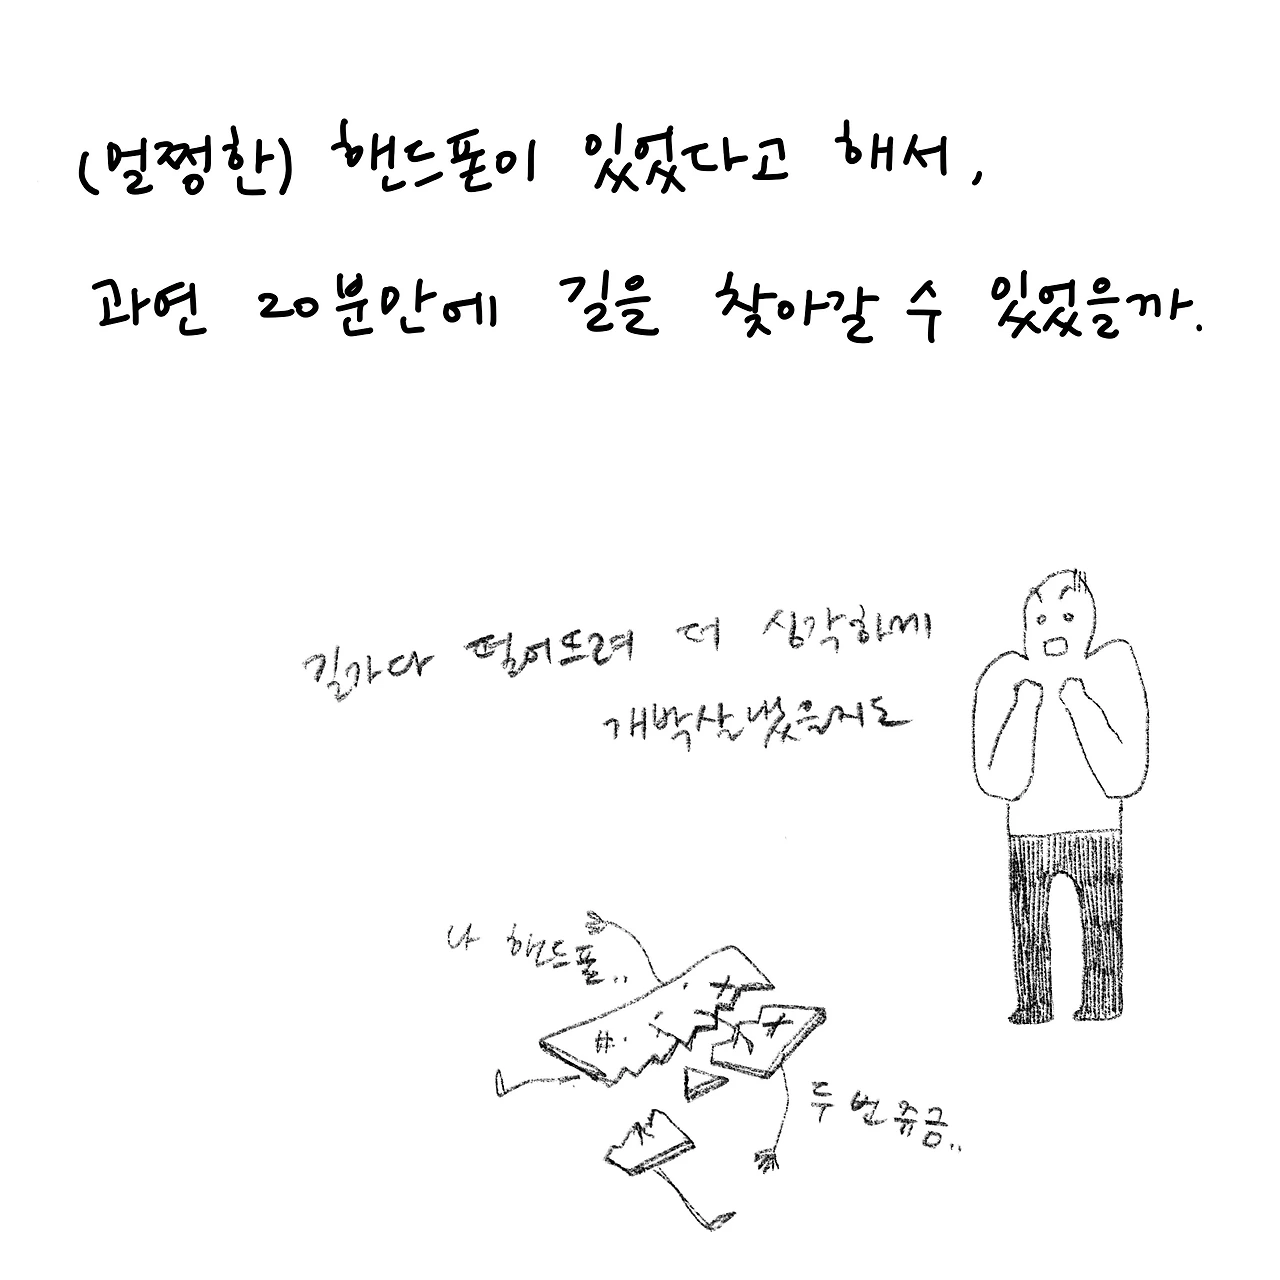 (멀쩡한) 핸드폰이 있었다고 해서,
과연 20분안에 길을 찾아갈 수 있었을까.
길가다 떨어뜨려 더 심각하게
개박살냈을지도
나 핸드폰..
두 번 쥬금..